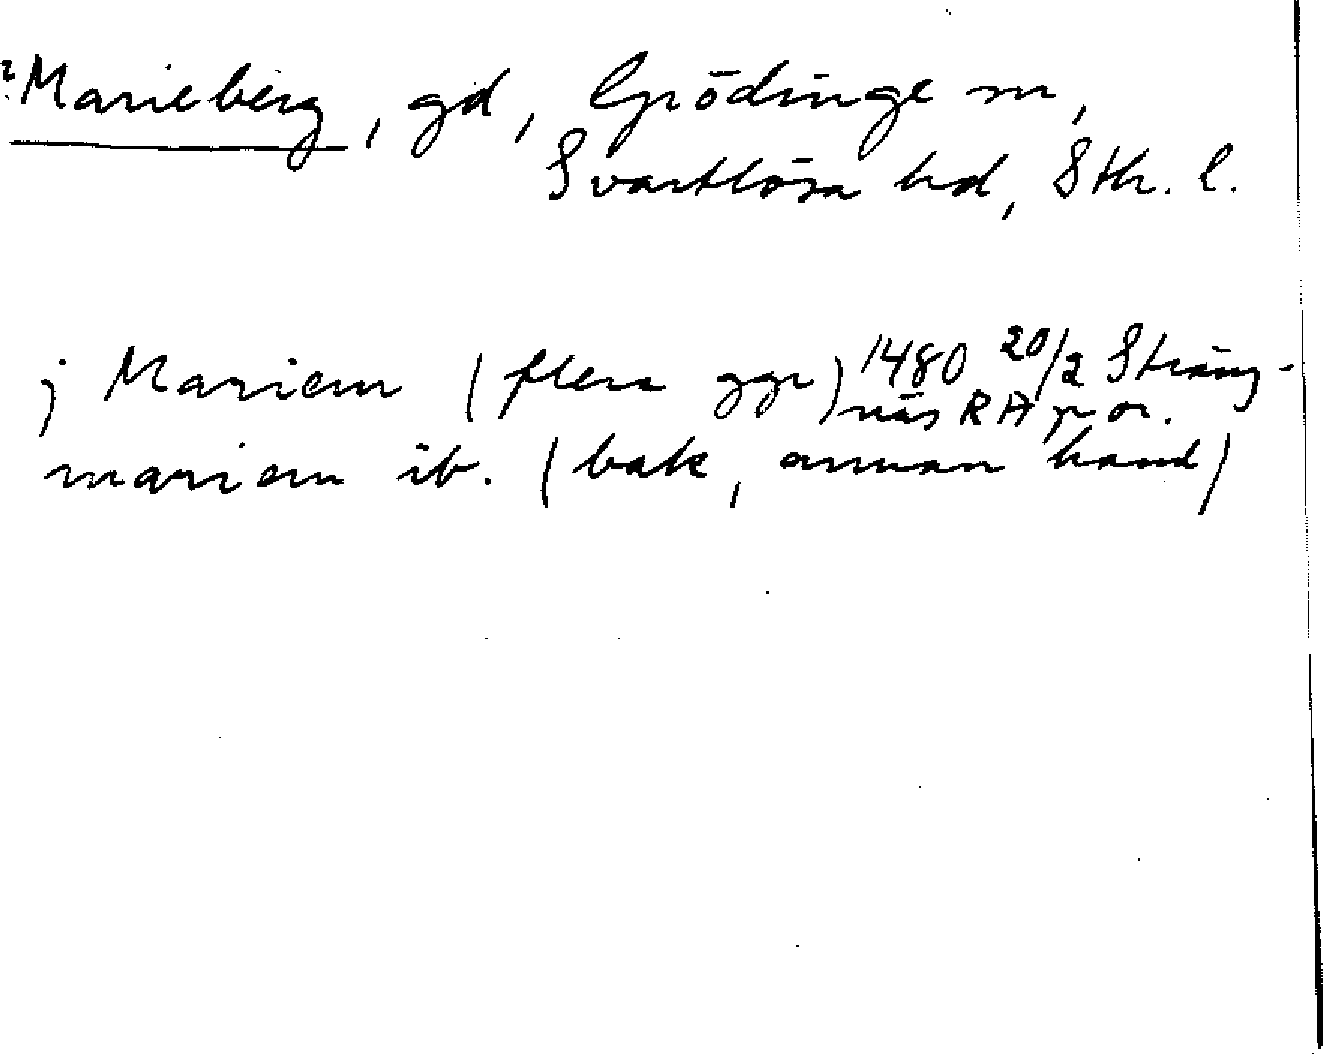 ?Marieberg, gd, Grödinge sn,
Svartlösa hd, Sth. l.
j Mariem (flera ggr) 1480 20/2 Sträng-
näs RA p or.
mariem ib. (bak, annan hand)